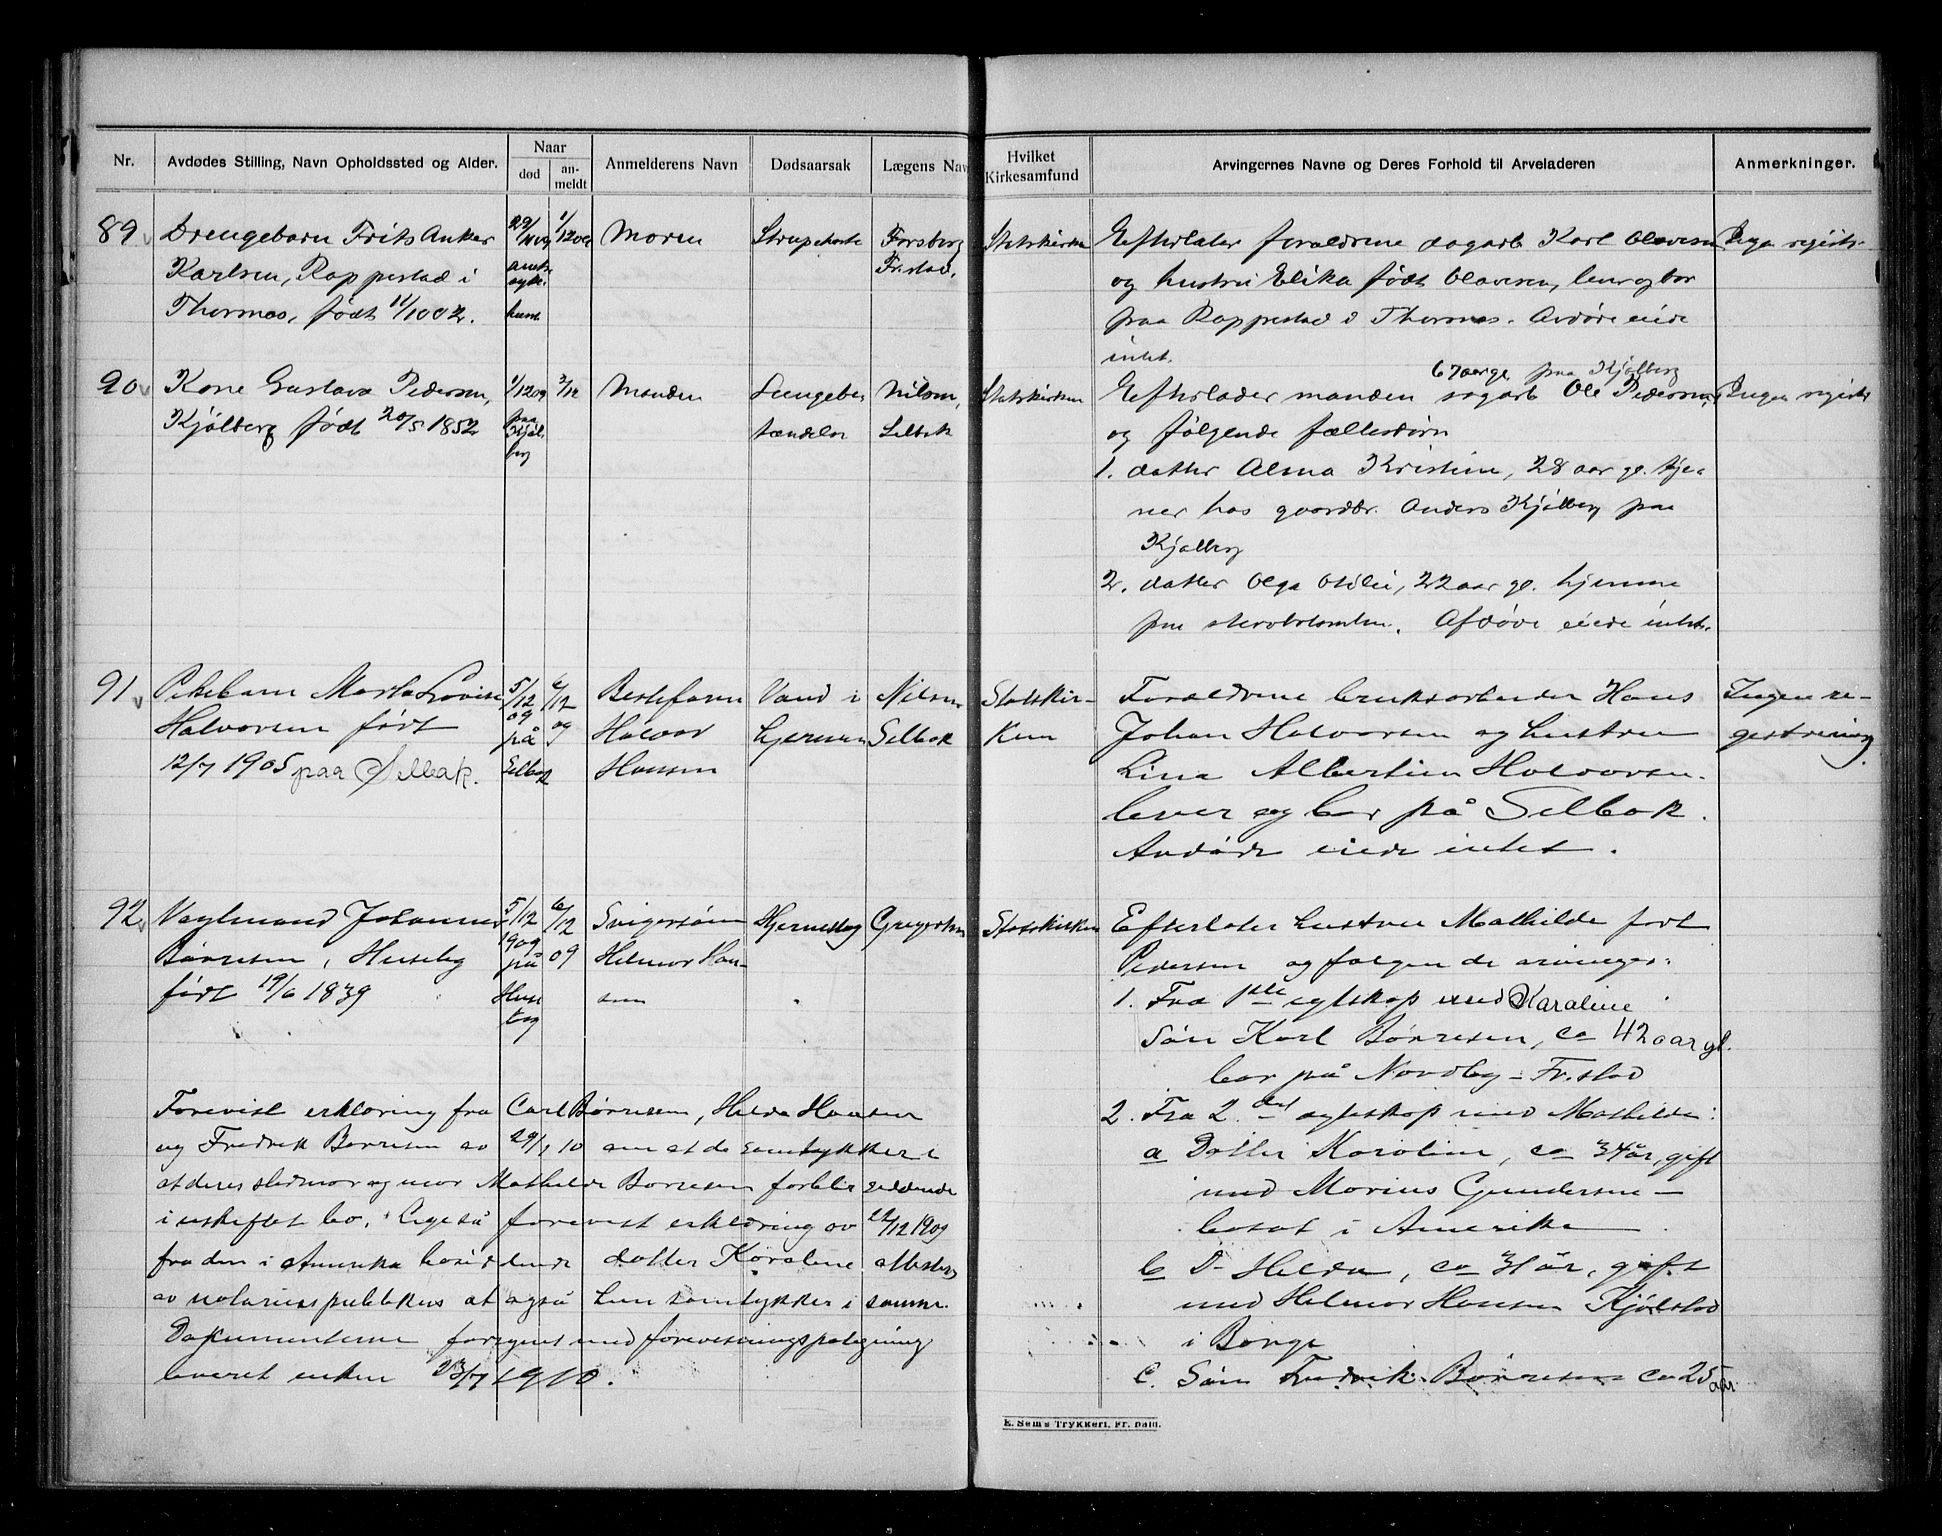 Nr.
Avdødes Stilling, Navn Opholdssted og Alder.
Naar
død
an-
meldt
Anmelderens Navn
Dødsaarsak
Lægens Nav
Hvilket
Kirkesamfund
Arvingernes Navne og Deres Forhold til Arveladeren
Anmerkninger.
89
Drengebarn Frits Anker
Karlsen, Roppestad i
Thorsnes, født 11/10 02.
29/11 09
syke-
huset
1/12 09
Moren
Strupehoste
Forsberg
Fr.stad.
Statskirken
Efterlater forældrene dagarb Karl Olavesen
og hustru Elika født Olavesen, lever og bor
paa Roppestad i Thorsnes. Avdøde eiede
intet.
Ingen registr.
90
Kone Gustava Pedersen,
Kjølberg født 20/5 1852
1/12 09
paa
Kjøl-
berg
3/12
Manden
Lungebe-
tændelse
Nilsen,
Selbak
Statskirken
67 aar gl. paa Kjølberg
Efterlader manden dagarb Ole Pedersen,
og følgende fællesbørn
1. datter Alma Kristine, 28 aar gl. tje-
ner hos gaardbr. Anders Kjølberg paa
Kjølberg
2. datter Olga Otilie, 22 aar gl. hjemme
paa sterbotomten. Afdøde eiede intet.
Ingen registr
91
Pikebarn Marta Lovise
Halvorsen født
12/7 1905 paa Selbak.
5/12
09
på
Selbak
6/12
09
Bestefaren
Halvor
Hansen
Vand i
hjernen
Nilsen
Selbak
Statskir-
ken
Forældrene bruksarbeider Hans
Johan Halvorsen og hustru
Lina Albertine Halvorsen.
lever og bor på Selbak.
Avdøde eiede intet.
Ingen re-
gistrering.
92
Vaglmand Johannes
Børresen, Huseby
født 19/6 1839
5/12
1909
på
Huse
by
6/12
09
Svigersøn
Helmer Han-
sen
Hjerneslag
Gregersen
Statskirken
Efterlater hustru Mathilde født
Pedersen og følgende arvinger:
1. Fra 1ste egteskap med Karaline:
Søn Karl Børresen, ca 42 aar gl.
bor på Nordby - Fr.stad
2. Fra 2det egteskap med Mathilde:
a Datter Karoline, ca 34 år, gift
med Marius Gundersen -
bosat i Amerika
b D- Helda, ca 31 år, gift
med Helmer Hansen Kjølstad
i Borge
c. Søn Fredrik Børresen ca 25
aar
Forevist erklæring fra Carl Børresen, Helda Hansen
og Fredrik Børresen av 29/1 10 om at de samtykker i
at deres stedmor og mor Mathilde Børresen forblir siddende
i uskiftet bo. Ligeså forevist erklæring av 22/12 1909
fra den i Amerika bosiddende datter Karoline attestert
av notarius publikus at også hun samtykker i samme.
Dokumenterne forsynet med forevisningspategning
leveret enken 23/7 1910.
E. Sem's Trykkeri, Fr. hald.